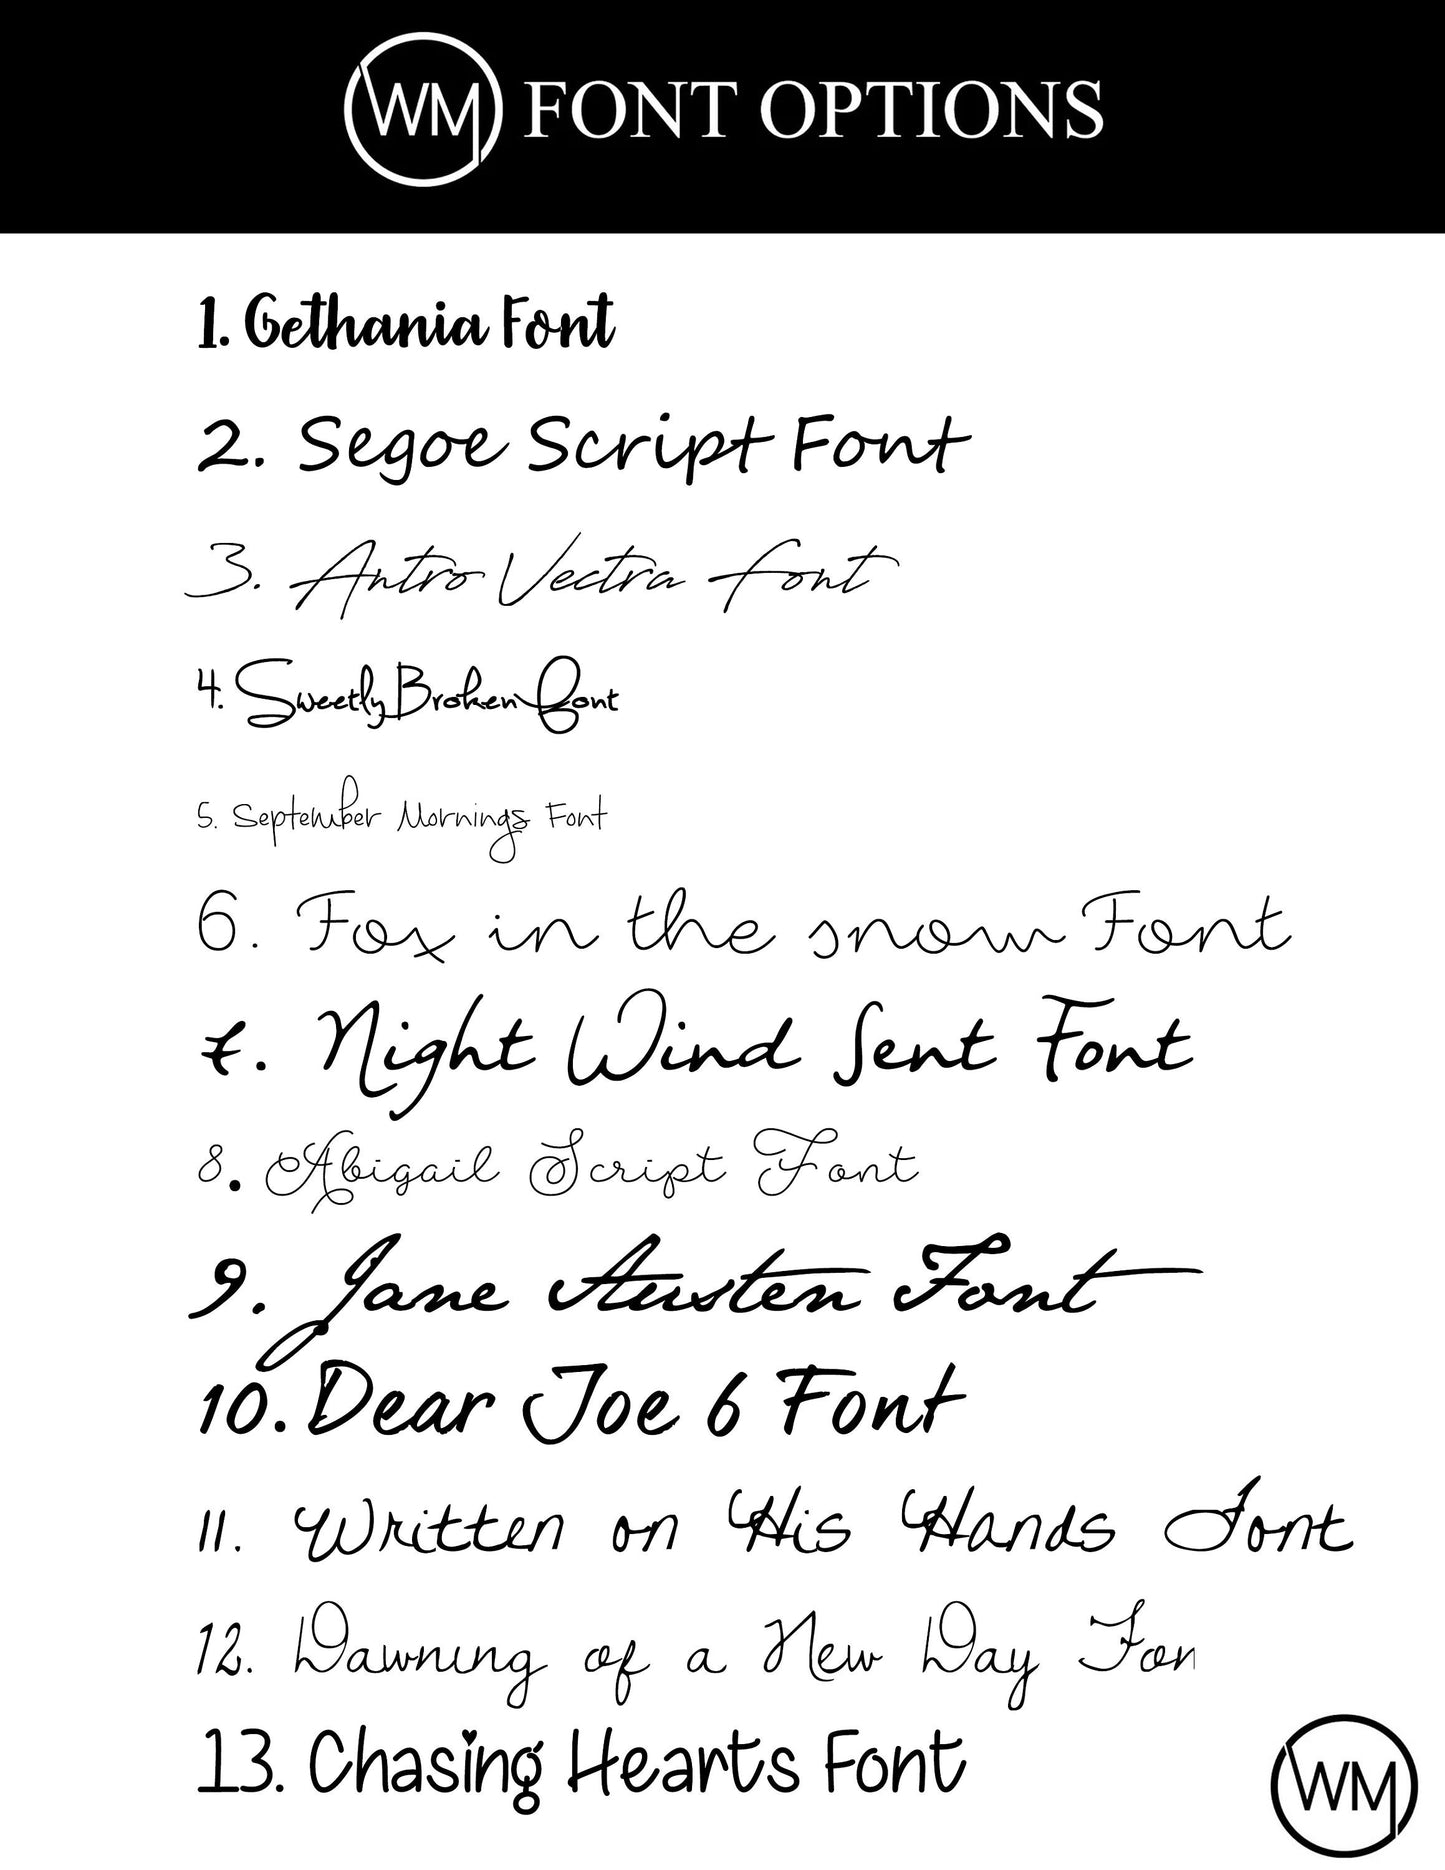 WM FONT OPTIONS
1. Gethania Font
2. Segoe Script Font
3. Antro Vectra Font
4. Sweetly Broken Font
5. September Mornings Font
6. Fox in the snow Font
7. Night Wind Sent Font
8. Abigail Script Font
9. Jane Austen Font
10. Dear Joe 6 Font
11. Written on His Hands Font
12. Dawning of a New Day Fon
13. Chasing Hearts Font
WM